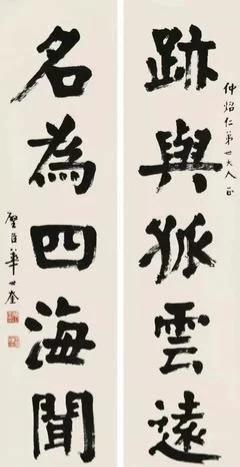 跡與孤雲遠
仲焰仁弟世大人正
名為四海聞
壁臣華世奎